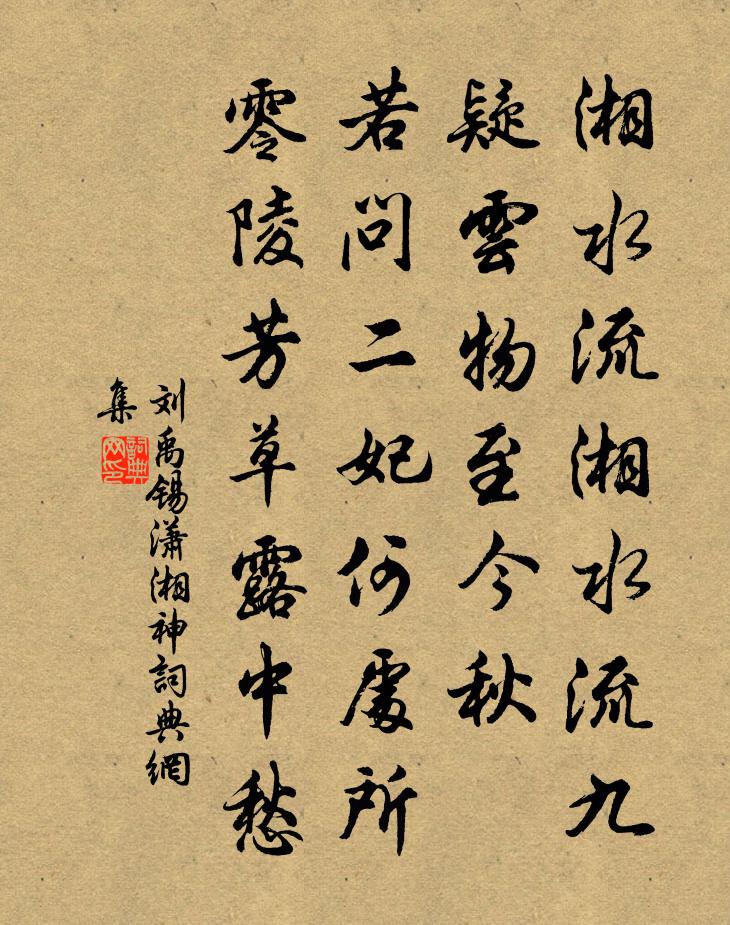 湘水流湘水流九
疑雲物至今秋
若問二妃何處所
零陵芳草露中愁
刘禹锡瀟湘神詞典網
集
詞典
网印